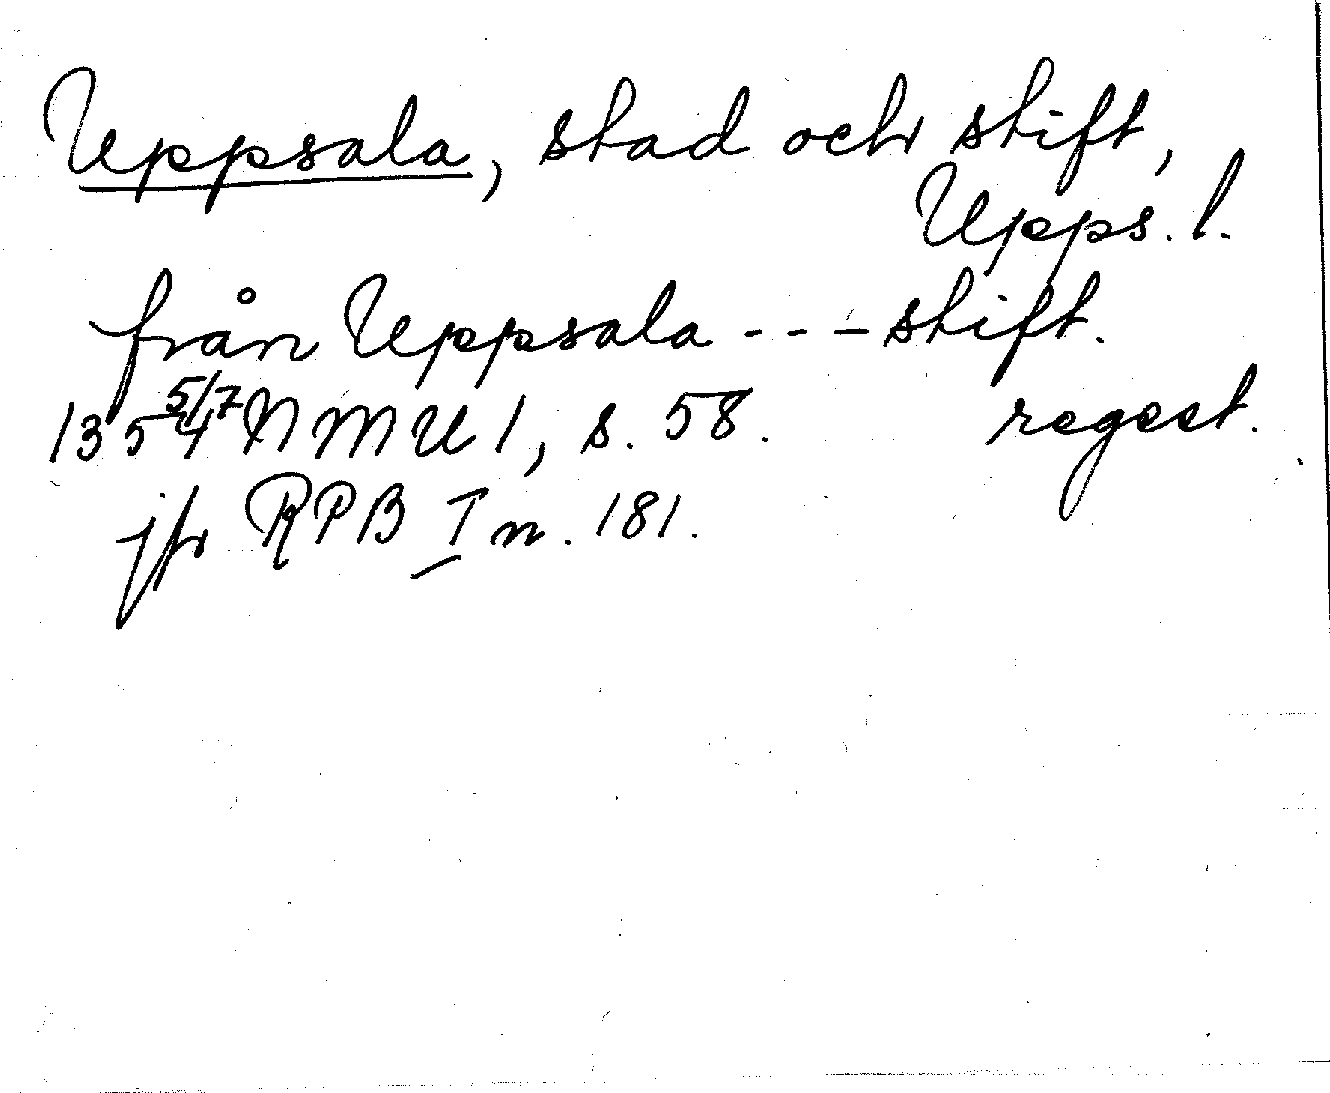 Uppsala, stad och stift,
Upps. l.
från Uppsala --- stift.
1354 5/7 NMU 1, s. 58. regest.
jfr RPB I n. 181.